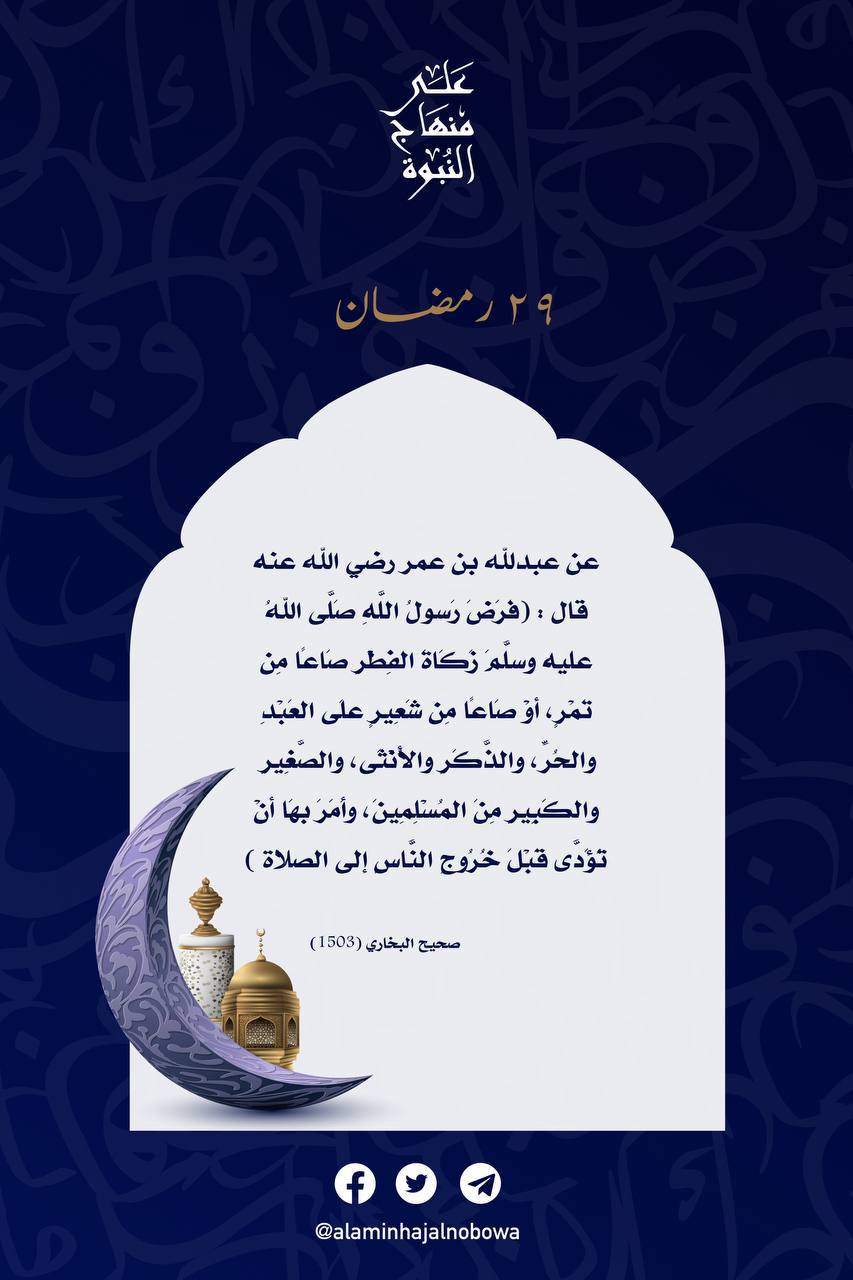 عَلَى
مِنهَاج
النُّبوة
٢٩ رمضان
عن عبدلله بن عمر رضي الله عنه
قال : (فرَضَ رَسولُ اللَّهِ صَلَّى اللهُ
عليه وسلَّمَ زَكَاةَ الفِطْرِ صَاعًا مِن
تَمْرٍ، أوْ صَاعًا مِن شَعِيرٍ علَى العَبْدِ
والحُرِّ، والذَّكَرِ والأُنْثَى، والصَّغِيرِ
والكَبِيرِ مِنَ المُسْلِمِينَ، وأَمَرَ بهَا أنْ
تُؤَدَّى قَبْلَ خُرُوجِ النَّاسِ إلى الصلاة )
صحيح البخاري (1503)
@alaminhajalnobowa